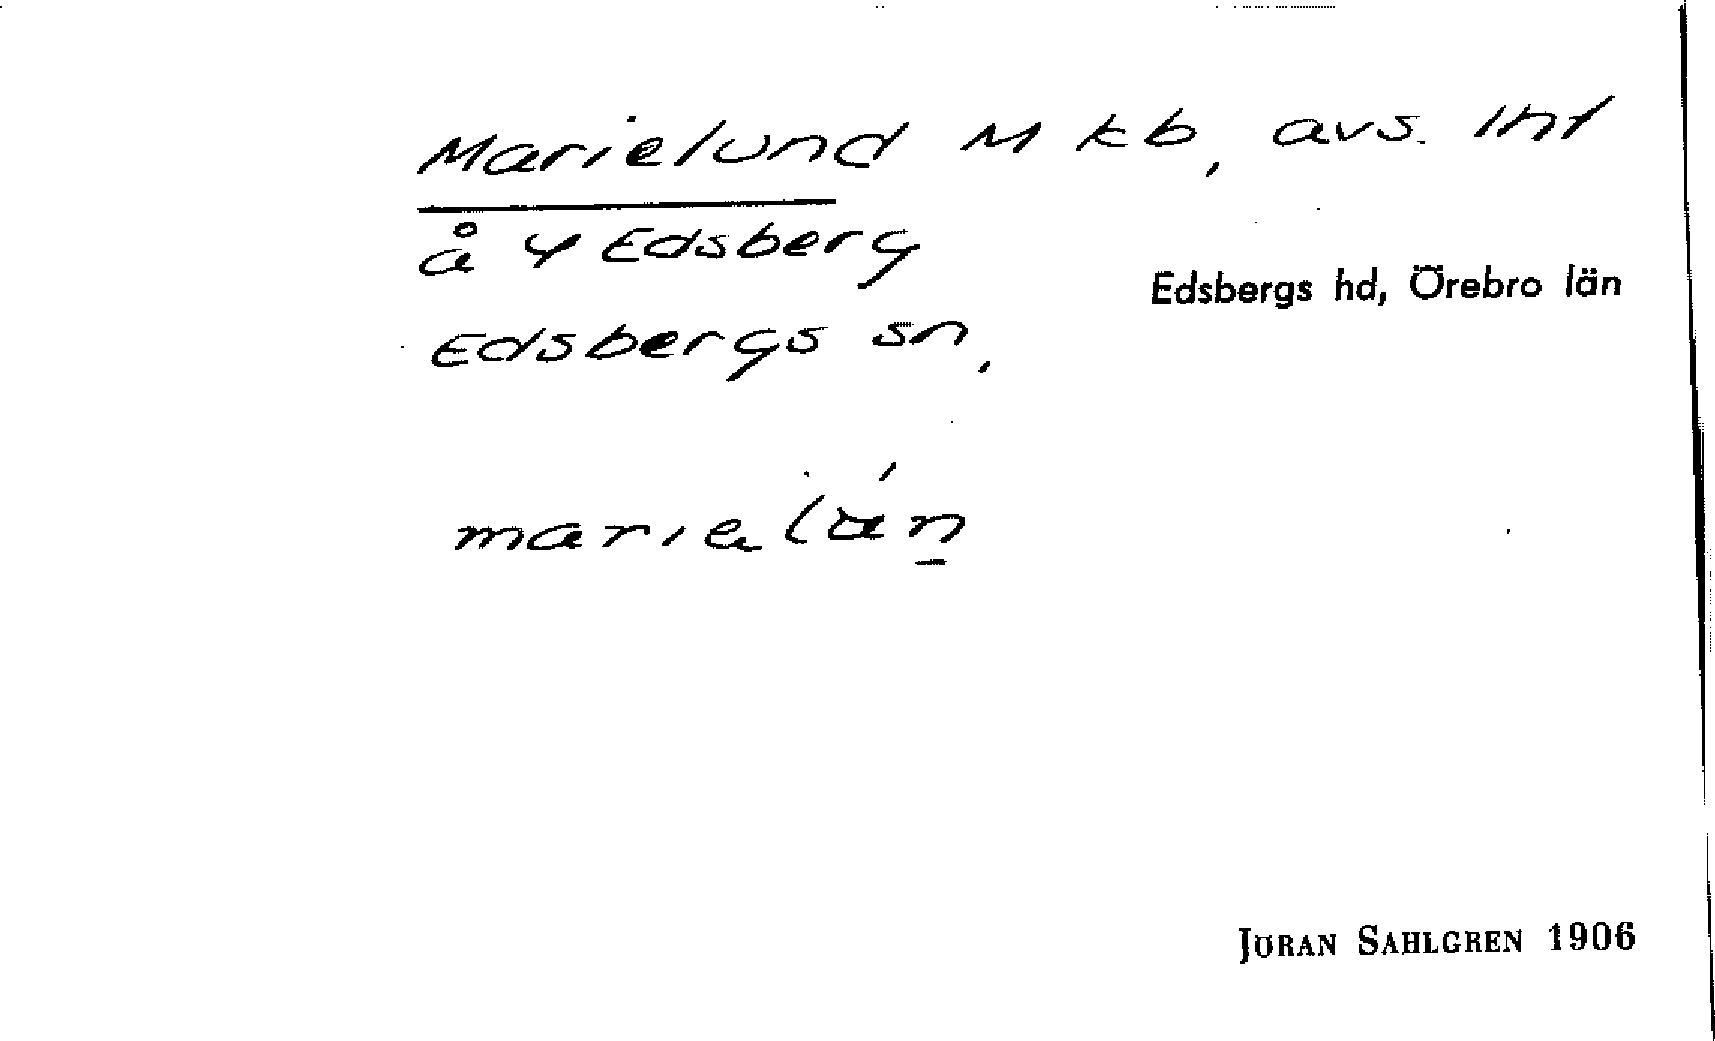 Marielund M kb, avs. lht
å 4 Edsberg
Edsbergs hd, Örebro län
Edsbergs sn,
JÖRAN SAHLGREN 1906